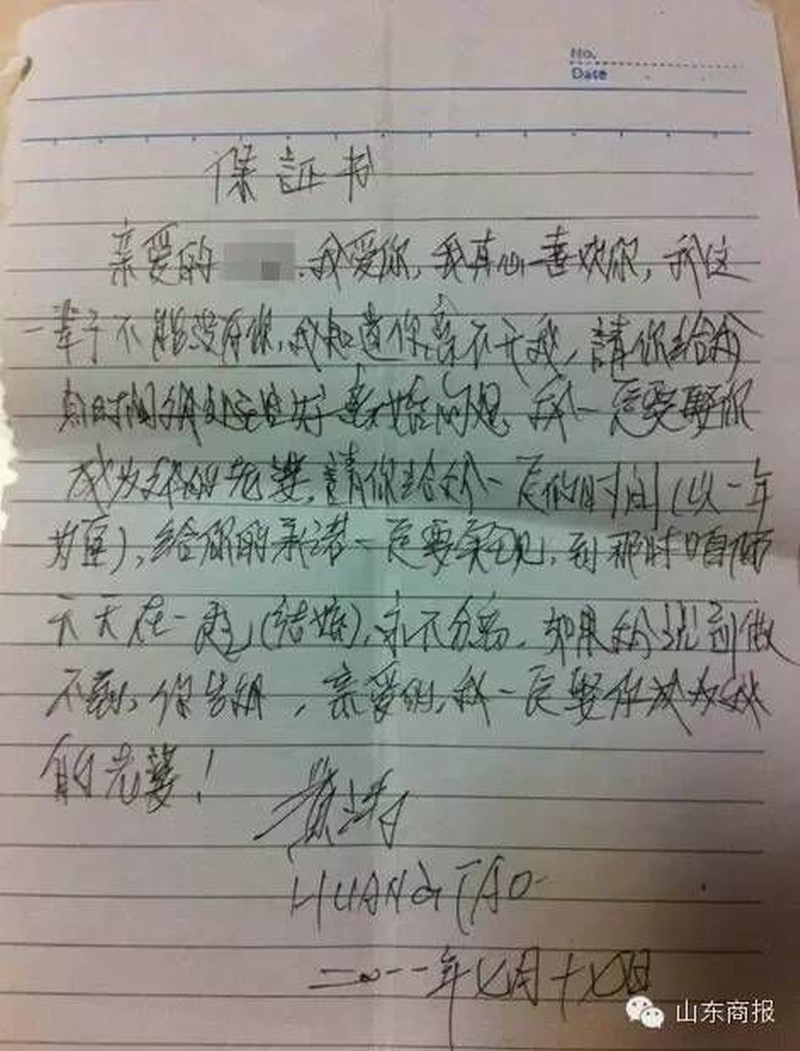 No.
Date
保证书
亲爱的 .我爱你,我真心喜欢你,我这
一辈子不能没有你,我知道你离不开我,請你给我
点时间我处理好离婚问题,我一定要娶你
成为我的老婆,請你给我一定的时间(以一年
为
),给你的承诺一定要实现,到那时咱俩
天天在一起(结婚),永不分离,如果我说到做
不到,你告我,亲爱的,我一定娶你成为我
的老婆!
黄涛
HUANG TAO
二〇一一年七月十七日
山东商报